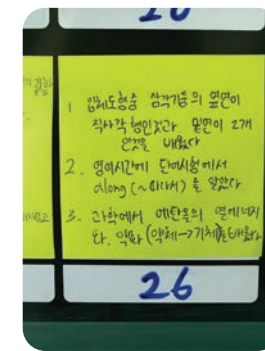 20
1 입체도형중 삼각기둥의 옆면이
직사각형인것과 밑면이 2개
인것을 배웠다
2. 영어시간에 단어시험에서
along (~따라서) 을 알았다
3. 과학에서 에탄올의 열에너지
와, 약화 (액체→기체)를 배웠다
26